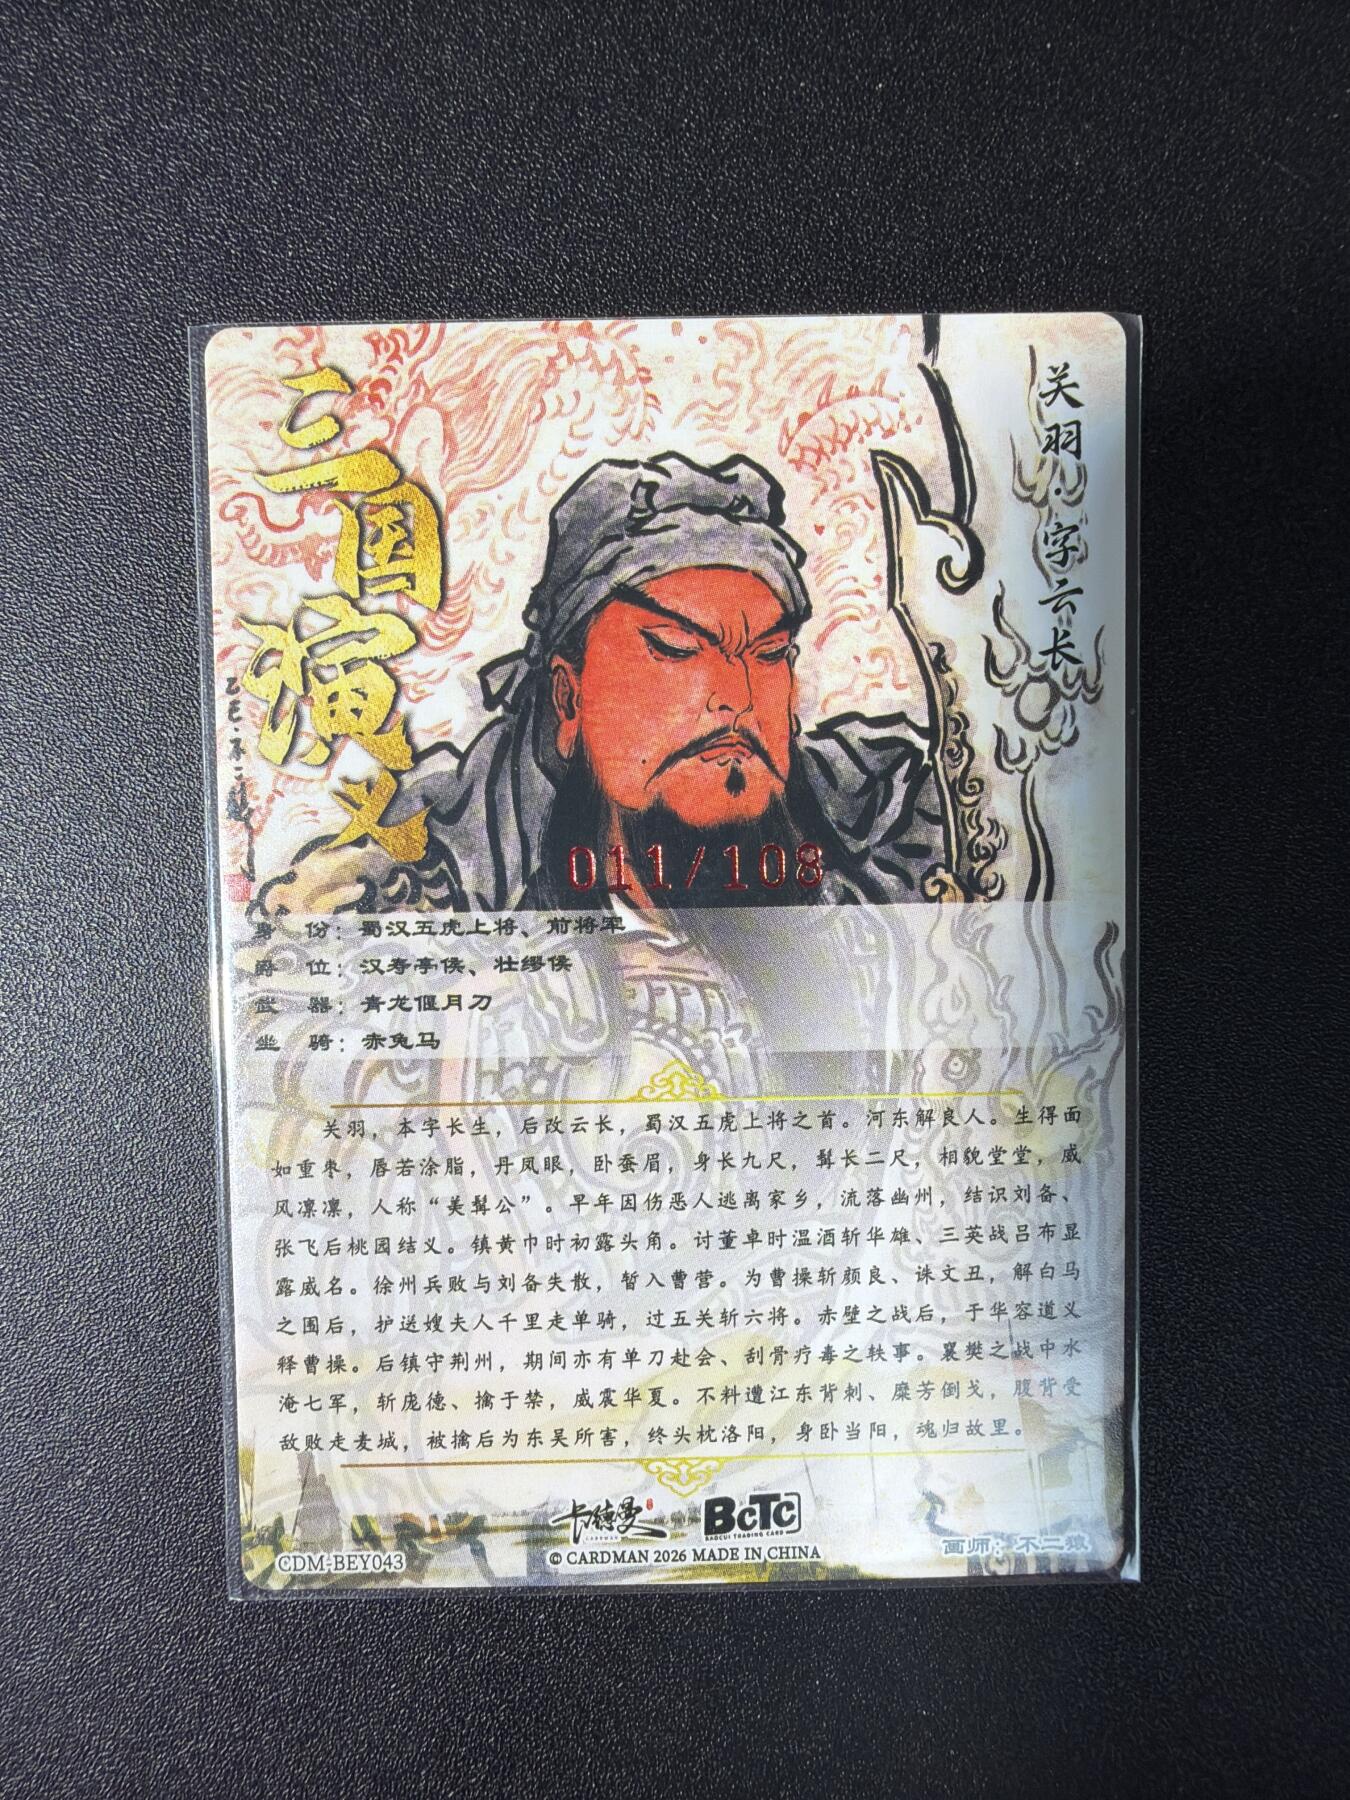 三国演义
关羽·字云长
乙巳·不二
011/108
身 份：蜀汉五虎上将、前将军
爵 位：汉寿亭侯、壮缪侯
武 器：青龙偃月刀
坐 骑：赤兔马
关羽，本字长生，后改云长，蜀汉五虎上将之首。河东解良人。生得面
如重枣，唇若涂脂，丹凤眼，卧蚕眉，身长九尺，髯长二尺，相貌堂堂，威
风凛凛，人称“美髯公”。早年因伤恶人逃离家乡，流落幽州，结识刘备、
张飞后桃园结义。镇黄巾时初露头角。讨董卓时温酒斩华雄、三英战吕布显
露威名。徐州兵败与刘备失散，暂入曹营。为曹操斩颜良、诛文丑，解白马
之围后，护送嫂夫人千里走单骑，过五关斩六将。赤壁之战后，于华容道义
释曹操。后镇守荆州，期间亦有单刀赴会、刮骨疗毒之轶事。襄樊之战中水
淹七军，斩庞德、擒于禁，威震华夏。不料遭江东背刺、糜芳倒戈，腹背受
敌败走麦城，被擒后为东吴所害，终头枕洛阳，身卧当阳，魂归故里。
卡德曼
CARDMAN
BCTC
BAOCUI TRADING CARD
CDM-BEY043
© CARDMAN 2026 MADE IN CHINA
画师：不二猿